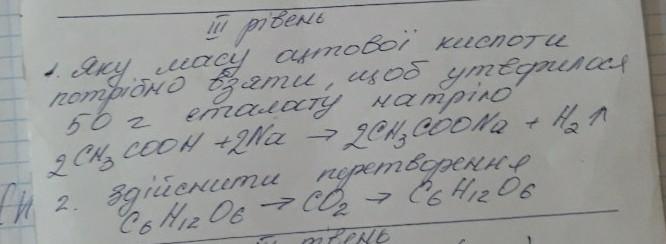 III рівень
1. Яку масу оцтової кислоти
потрібно взяти, щоб утворилося
50 г сталату натрію
2CH₃COOH + 2Na → 2CH₃COONa + H₂↑
2. Здійснити перетворення
C₆H₁₂O₆ → CO₂ → C₆H₁₂O₆
рівень